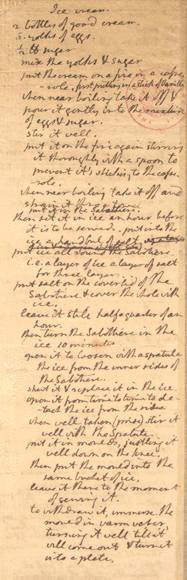 Ice cream.
2. bottles of good cream.
6. yolks of eggs.
1/2 lb sugar
mix the yolks & sugar
put the cream on a fire in a casse-
-role, first putting in a stick of Vanilla.
when near boiling take it off &
pour it gently into the mixture
of eggs & sugar.
stir it well.
put it on the fire again stirring
it thoroughly with a spoon to
prevent it's sticking to the casse-
role.
when near boiling take it off and
strain it thro' a
put it in the Sabottiere
then set it in ice an hour before
it is to be served. put into the
ice a handful of salt.
put ice all around the Sabottiere
i.e. a layer of ice a layer of salt
for three layers.
put salt on the coverlid of the
Sabotiere & cover the whole with
ice.
leave it still half a quarter of an
hour.
then turn the Sabottiere in the
ice 10 minutes
open it to loosen with a spatula
the ice from the inner sides of
the Sabotiere.
shut it & replace it in the ice
open it from time to time to de-
tach the ice from the sides
when well taken (prise) stir it
well with the Spatula.
put it in moulds, justling it
well down on the knee.
then put the mould into the
same bucket of ice.
leave it there to the moment
of serving it.
to withdraw it, immerse the
mould in warm water,
turning it well till it
will come out & turn it
into a plate.